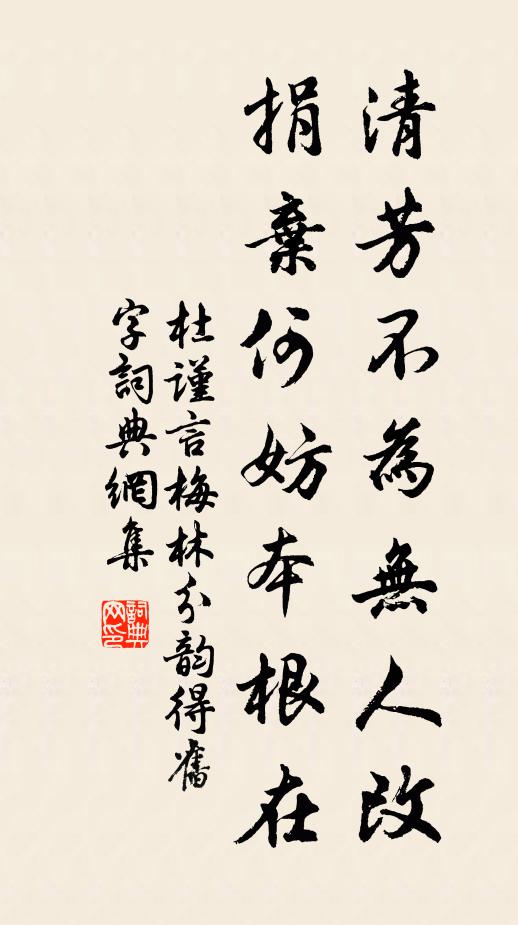 清芳不為無人改
捐棄何妨本根在
杜謹言梅林分韵得舊
字詞典網集
詞典网印